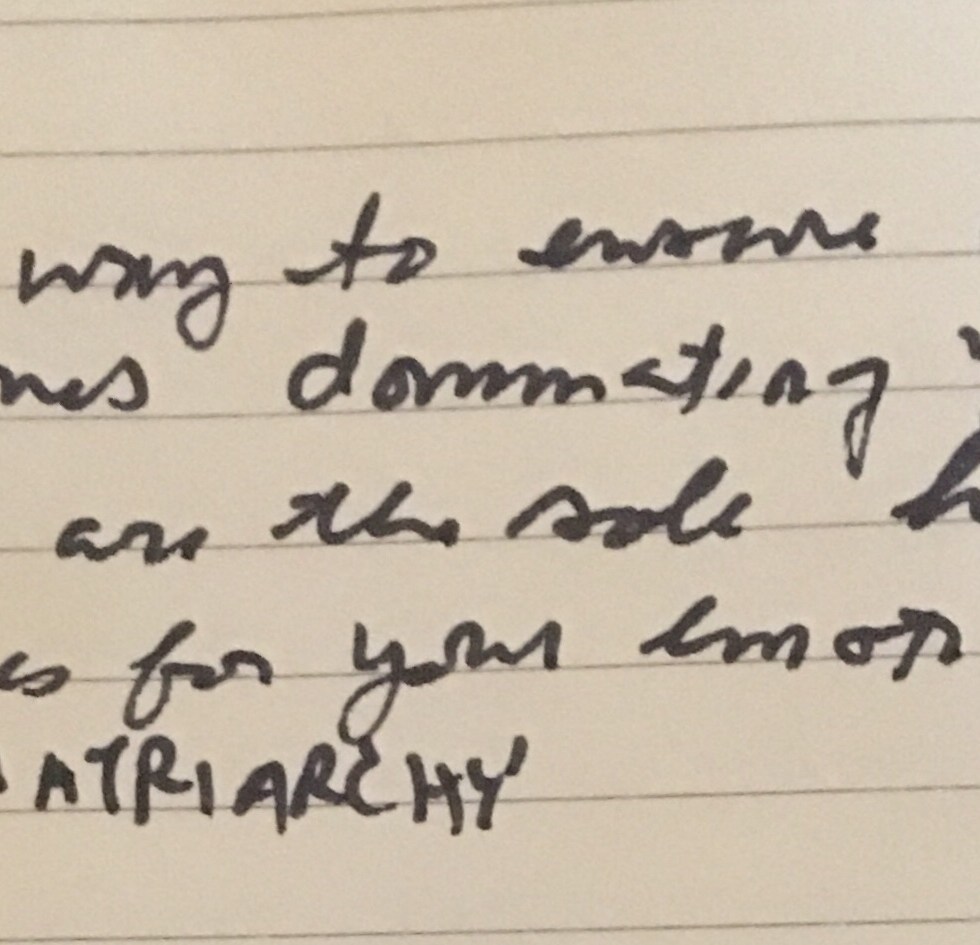 way to ensure
nes dominating
are the sole h
es for your emot
ATRIARCHY